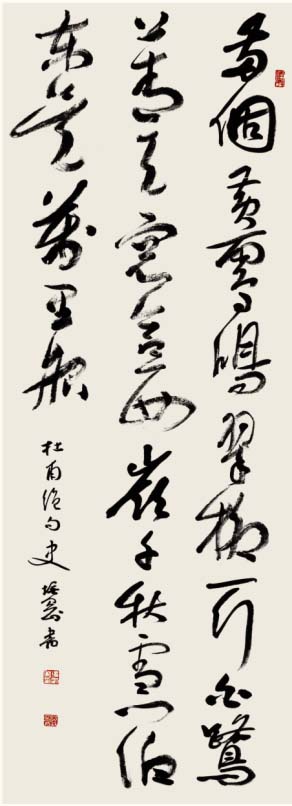 兩個黃鸝鳴翠柳一行白鷺
上青天窗含西嶺千秋雪门泊
東吳萬里船
杜甫绝句史書